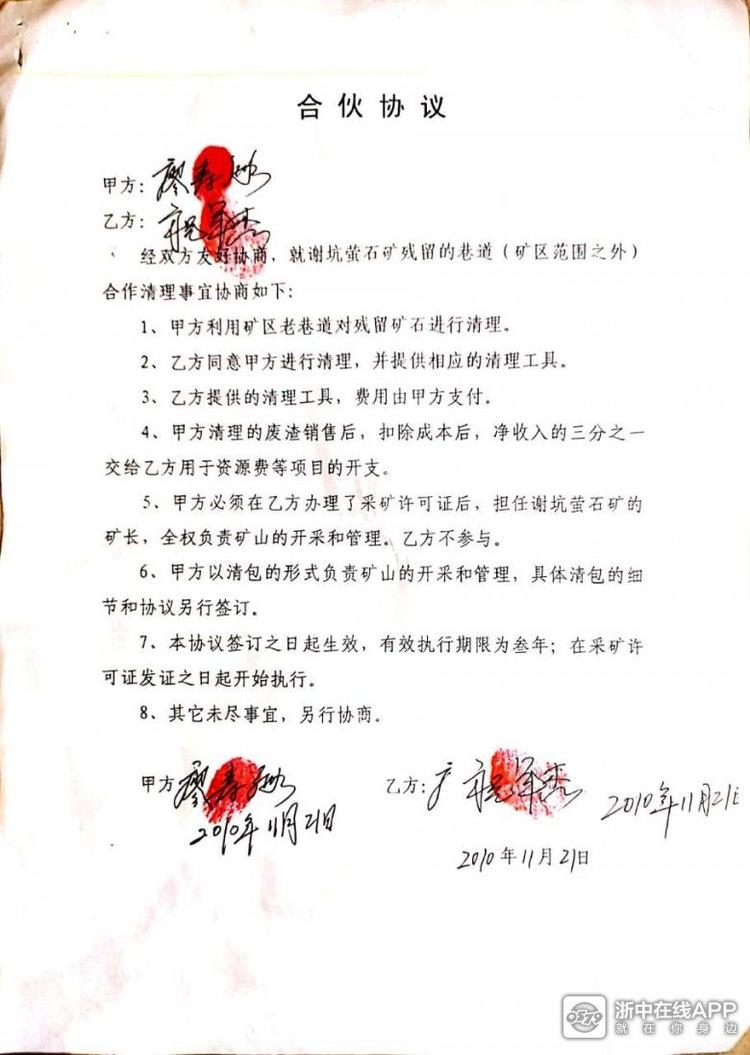 合伙协议
甲方：廖寿
乙方：祝军杰
经双方友好协商，就谢坑萤石矿残留的巷道（矿区范围之外）
合作清理事宜协商如下：
1、甲方利用矿区老巷道对残留矿石进行清理。
2、乙方同意甲方进行清理，并提供相应的清理工具。
3、乙方提供的清理工具，费用由甲方支付。
4、甲方清理的废渣销售后，扣除成本后，净收入的三分之一
交给乙方用于资源费等项目的开支。
5、甲方必须在乙方办理了采矿许可证后，担任谢坑萤石矿的
矿长，全权负责矿山的开采和管理。乙方不参与。
6、甲方以清包的形式负责矿山的开采和管理，具体清包的细
节和协议另行签订。
7、本协议签订之日起生效，有效执行期限为叁年；在采矿许
可证发证之日起开始执行。
8、其它未尽事宜，另行协商。
甲方 廖寿
2010年11月21日
乙方：祝军杰
2010年11月21日
2010年11月21日
浙中在线APP
就在你身边